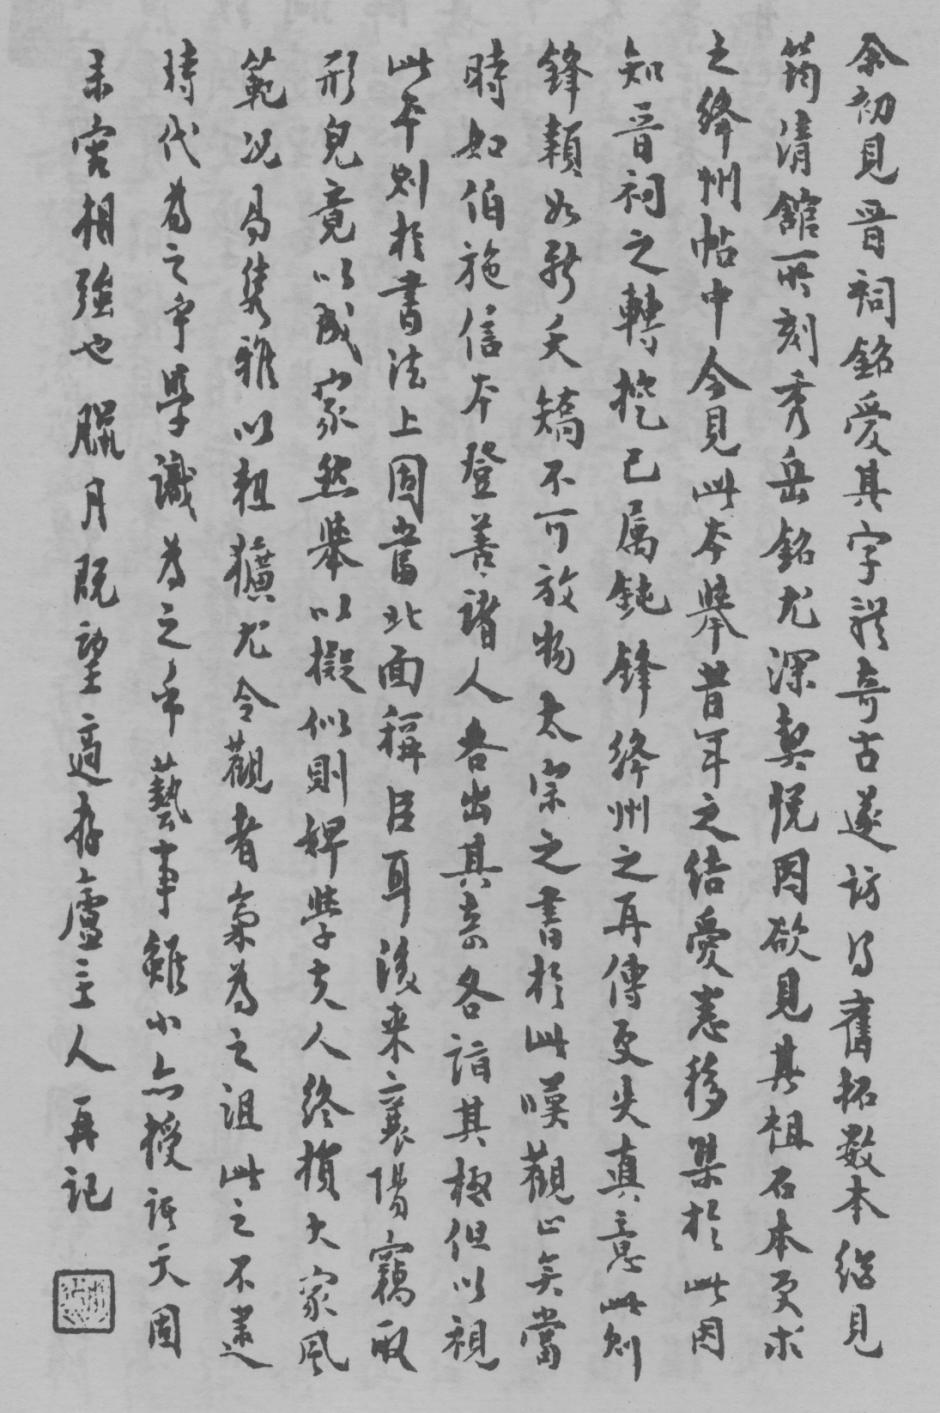 余初見晉祠銘愛其字體奇古遂訪得舊拓數本繼見
筠清館所刻秀岳銘尤深契悅因欲見其祖石本更求
之絳州帖中今見此本舉昔年之結愛悉移集於此因
知晉祠之轉摸已屬鈍鋒絳州之再傳更失真意此則
鋒穎如新夭矯不可放物太宗之書於此嘆觀止矣當
時如伯施信本登善諸人各出其奇各詣其極但以視
此本則於書法上固當北面稱臣耳後來襄陽竊取
形皃竟以成家然舉以擬似則婢學夫人終損大家風
範況易雋雅以粗獷尤令觀者氣為之沮此之不逮
時代為之乎學識為之乎藝事雖小亦授諸天固
未容相強也臘月既望適存廬主人再記